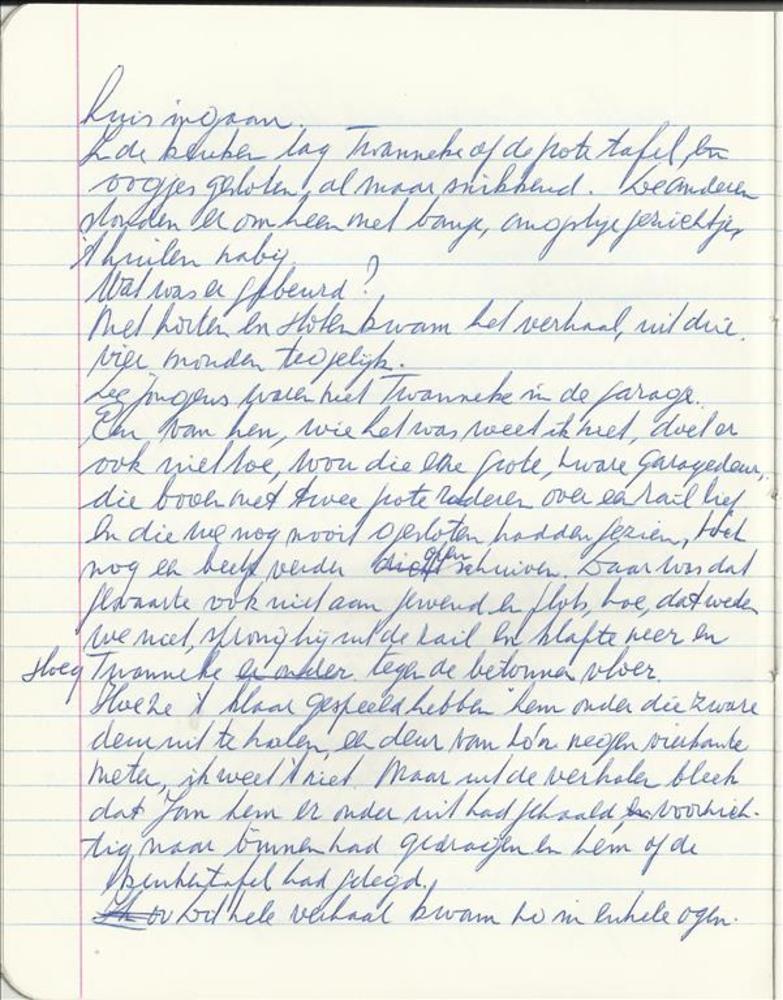 huis ingaan.
In de keuken lag Twanneke op de grote tafel, de
oogjes gesloten, al maar snikkend. De anderen
stonden er omheen met bange, angstige gezichtjes,
't huilen nabij.
Wat was er gebeurd?
Met horten en stoten kwam het verhaal, uit drie,
vier monden tegelijk.
De jongens waren met Twanneke in de garage.
Een van hen, wie het was weet ik niet, doet er
ook niet toe, wou die ene grote, zware garagedeur,
die boven met twee grote raderen over een rail liep
en die we nog nooit gesloten hadden gezien, toch
nog een beetje verder dicht open schuiven. Daar was dat
gevaarte ook niet aan gewend en flots, hoe, dat weten
we niet, sprong hij uit de rail en klapte neer en
sloeg Twanneke er onder tegen de betonnen vloer.
Hoe ze 't klaar gespeeld hebben hem onder die zware
deur uit te halen, een deur van zo'n negen vierkante
meter, ik weet 't niet. Maar uit de verhalen bleek
dat Jan hem er onder uit had gehaald, en voorzich-
tig naar binnen had gedragen en hem op de
keukentafel had gelegd.
Dit hele verhaal kwam zo in enkele ogen-